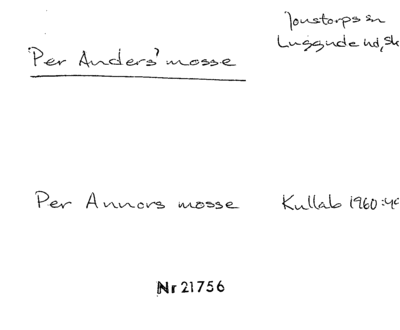 Jonstorps sn
Luggude hd, Sk
Per Anders' mosse
Per Annors mosse
Kullab 1960:49
Nr 21756